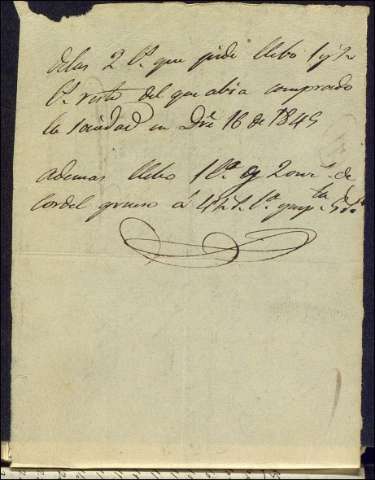 Delas 2 l.ˢ que pidi llebo 1 y ½
l.ˢ resto del que abia comprado
la sociedad en Dře 16 de 1845
ademas llebo 1 l.ᵃ y 2 onz.ˢ de
Cordel grueso á